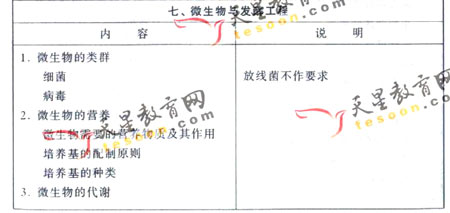 七、微生物与发酵工程
内 容 说 明
1. 微生物的类群
细菌 放线菌不作要求
病毒
2. 微生物的营养
微生物需要的营养物质及其作用
培养基的配制原则
培养基的种类
3. 微生物的代谢
天星教育网
tesoon.com
天星教育网
tesoon.com